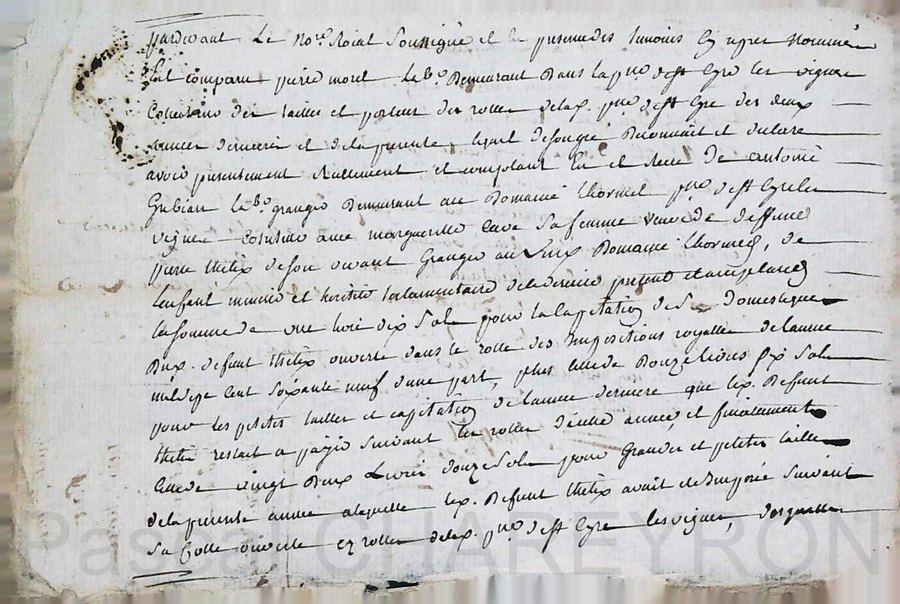 pardevant Le no.re Roial Soussigné et les presens des temoins cy apres nommés
fut comparu pierre morel Lab.r Demeurant Dans la p.sse de st Cyr les vignes
Collecteur des tailles et porteur des rolles de lad. p.sse de st Cyre des deux
années dernieres et de la presente, lequel de son gré Reconnait et declare
avoir presentement reellement et comptant Eu et Receu De antoine
Gubian Lab.r granger Demeurant au Domaine p.sse de st Cyr les
vignes marguerite Sa femme veuve de deffunt
pierre de son vivant Granger au Susd. Domaine, de
Lenfant mineur et heritier testamentaire de ce dernier present et acceptant
La somme de une livre dix Sols pour la Capitation de Domestique
Dud. defunt ouverte dans le rolle des Impositions royalles de lannée
mil sept cent soixante neuf dune part, plus celle de Douze Livres dix Sols
pour les petites tailles et capitation de lannée derniere que led. Defunt
restait a payer Suivant les rolles année, et finalement
Celle de vingt Deux Livres douze Sols pour Grandes et petites tailles
de la presente année a laquelle led. Defunt avait eté Imposé Suivant
Sa Cotte ouverte es rolles de lad. p.sse de st Cyre les vignes, desquelles
Pascal CHAREYRON